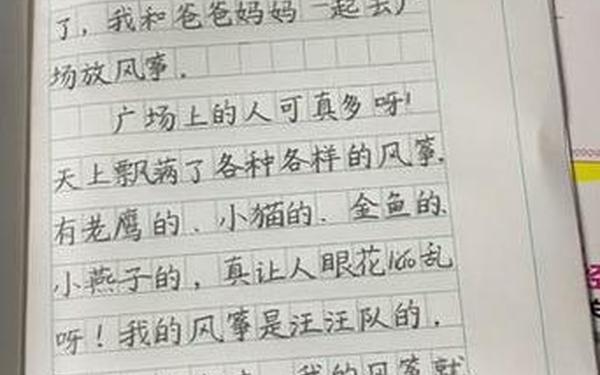 了，我和爸爸妈妈一起去广
场放风筝．
广场上的人可真多呀！
天上飘满了各种各样的风筝．
有老鹰的．小猫的．金鱼的．
小燕子的，真让人眼花缭乱
呀！我的风筝是汪汪队的．
我的风筝就